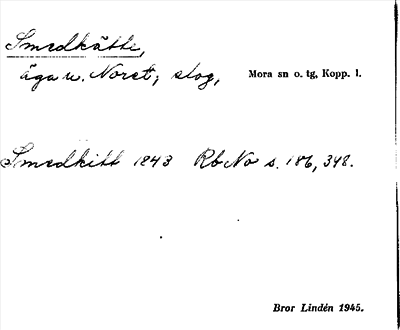 Smedkätti,
äga u. Noret; skog, Mora sn o. tg, Kopp. l.
Smedkitt 1843 RbNo s. 186, 348.
Bror Lindén 1945.